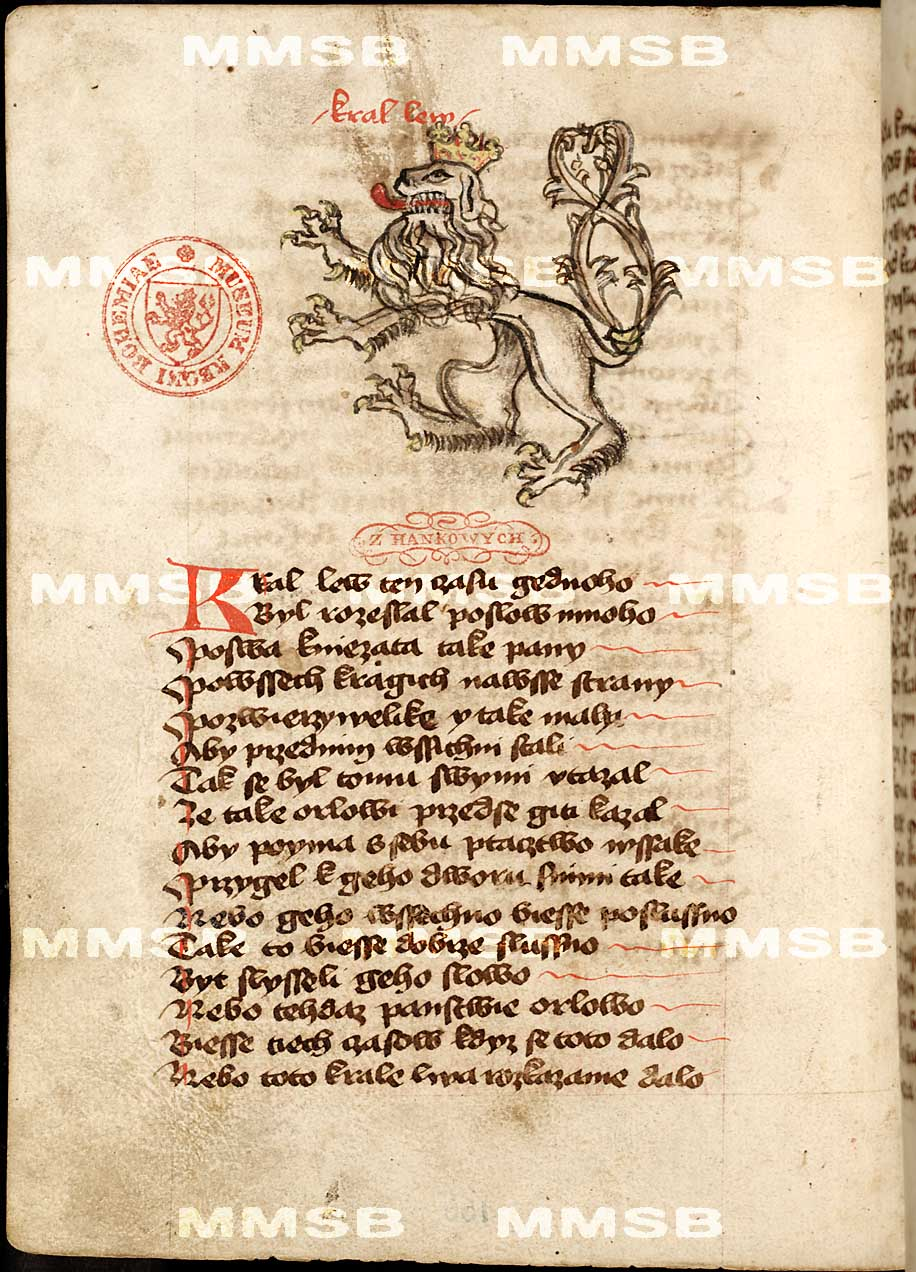 MMSB MMSB
kral lew
MUSEUM REGNI BOHEMIAE
MMSB MMSB
Z HANKOWYCH
Kral lew ten czasu gednoho
MMSB MMSB
Byl rozeslal poslow mnoho
Poswa kniezata take pany
Powssech kragich nawsse strany
Pozwierzy welike y take maly
Aby przednim wssichni stali
Tak se byl tomu swymi vtazal
Ze take orlowi przedse giti kazal
Aby poyma s sebu ptacztwo wssake
Przygel k geho dworu snimi take
Nebo geho wssechno biesse poslussno
MMSB MMSB
Take to biesse dobrze slussno
Byt slysseli geho slowo
Nebo tehdaz panstwie orlowo
Biesse tiech czasow kdyz se toto dalo
Nebo toto krale lwa rozkazanie dalo
MMSB MMSB